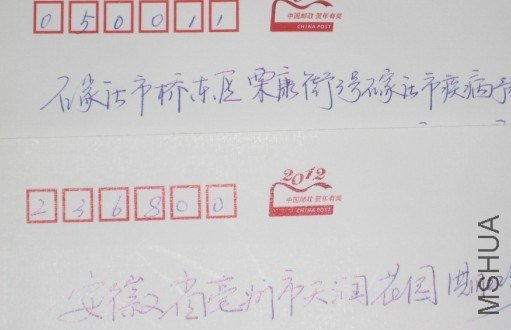 050011
中国邮政 贺年有奖
CHINA POST
石家庄市桥东区栗康街3号石家庄市疾病预
2012
236800
中国邮政 贺年有奖
CHINA POST
安徽省亳州市天润花园
MSHUA